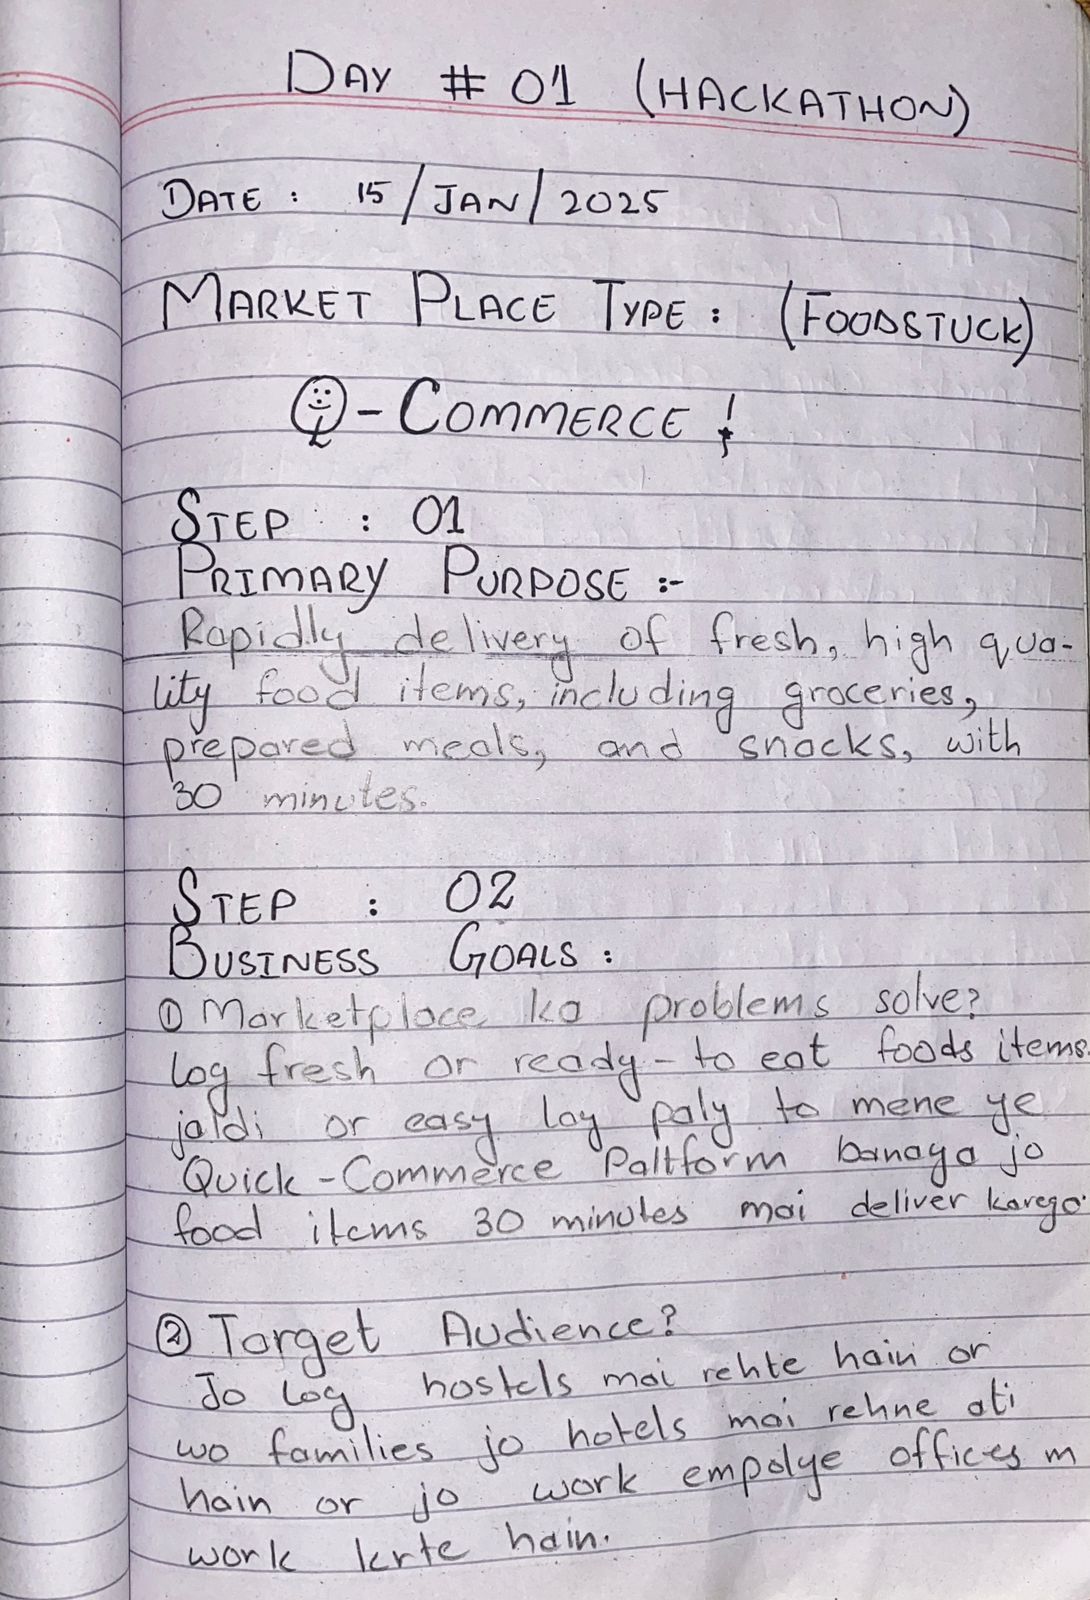 DAY # 01 (HACKATHON)
DATE : 15/JAN/2025
MARKET PLACE TYPE : (FOODSTUCK)
Q-COMMERCE !
STEP : 01
PRIMARY PURPOSE :-
Rapidly delivery of fresh, high qua-
lity food items, including groceries,
prepared meals, and snacks, with
30 minutes.
STEP : 02
BUSINESS GOALS :
① Marketplace ka problems solve?
log fresh or ready-to eat foods items
jaldi or easy lay paly to mene ye
Quick-Commerce Paltform banaya jo
food items 30 minutes mai deliver karega.
② Target Audience?
Jo Log hostels mai rehte hain or
wo families jo hotels mai rehne ati
hain or jo work empolye offices m
work krte hain.